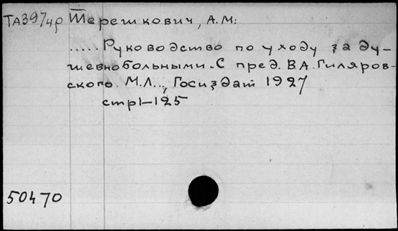 ТА397чр Терешкович, А.М:
..... Руководство по уходу за ду-
шевнобольными. С пред. В.А. Гиляров-
ского. М.Л.., Госиздат 1927
стр1-125
50470